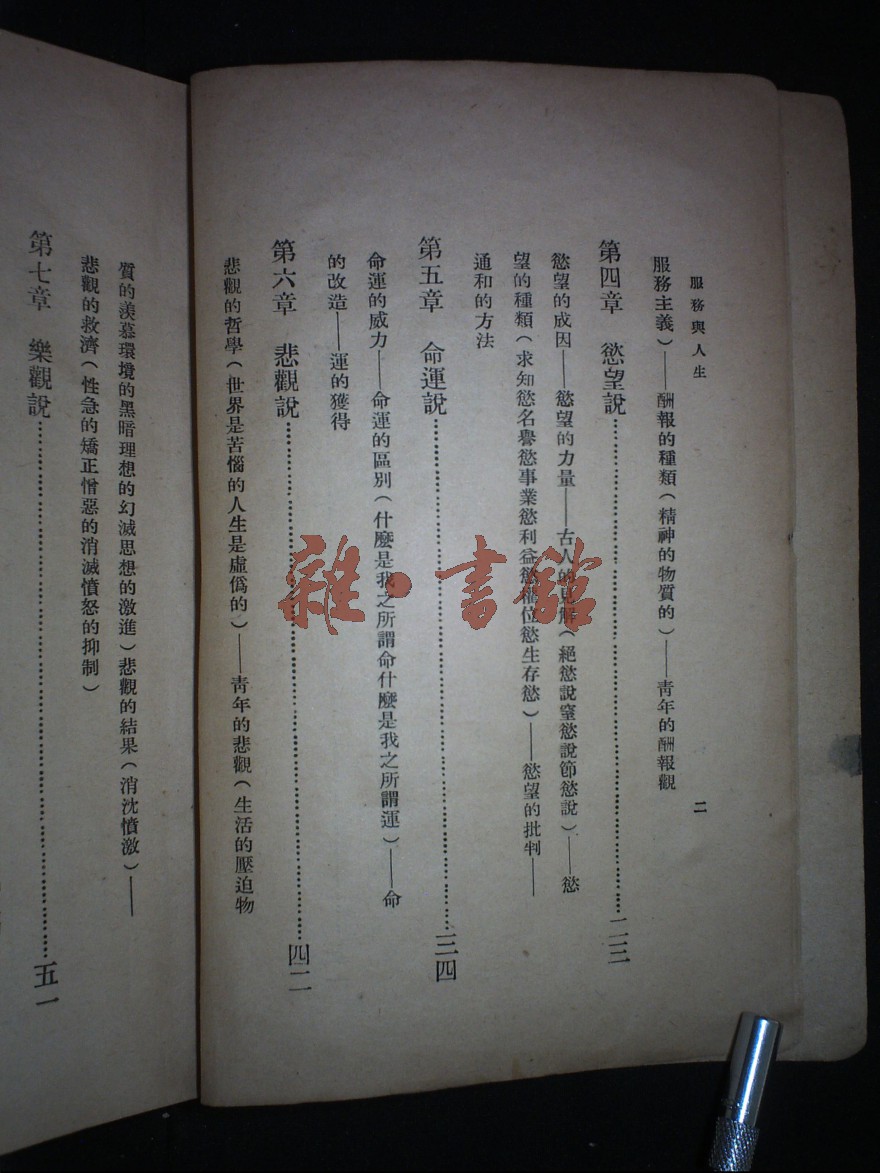 服務與人生
二
服務主義)——酬報的種類(精神的物質的)——靑年的酬報觀
第四章 慾望說……二三
慾望的成因——慾望的力量——古人的見解(絕慾說窒慾說節慾說)——慾
望的種類(求知慾名譽慾事業慾利益慾權位慾生存慾)——慾望的批判——
通和的方法
第五章 命運說……三四
命運的威力——命運的區別(什麼是我之所謂命什麼是我之所謂運)——命
的改造——運的獲得
第六章 悲觀說……四二
悲觀的哲學(世界是苦惱的人生是虛僞的)——靑年的悲觀(生活的壓迫物
質的羨慕環境的黑暗理想的幻滅思想的激進)悲觀的結果(消沈憤激)——
悲觀的救濟(性急的矯正憎惡的消滅憤怒的抑制)
第七章 樂觀說……五一
雜·書館